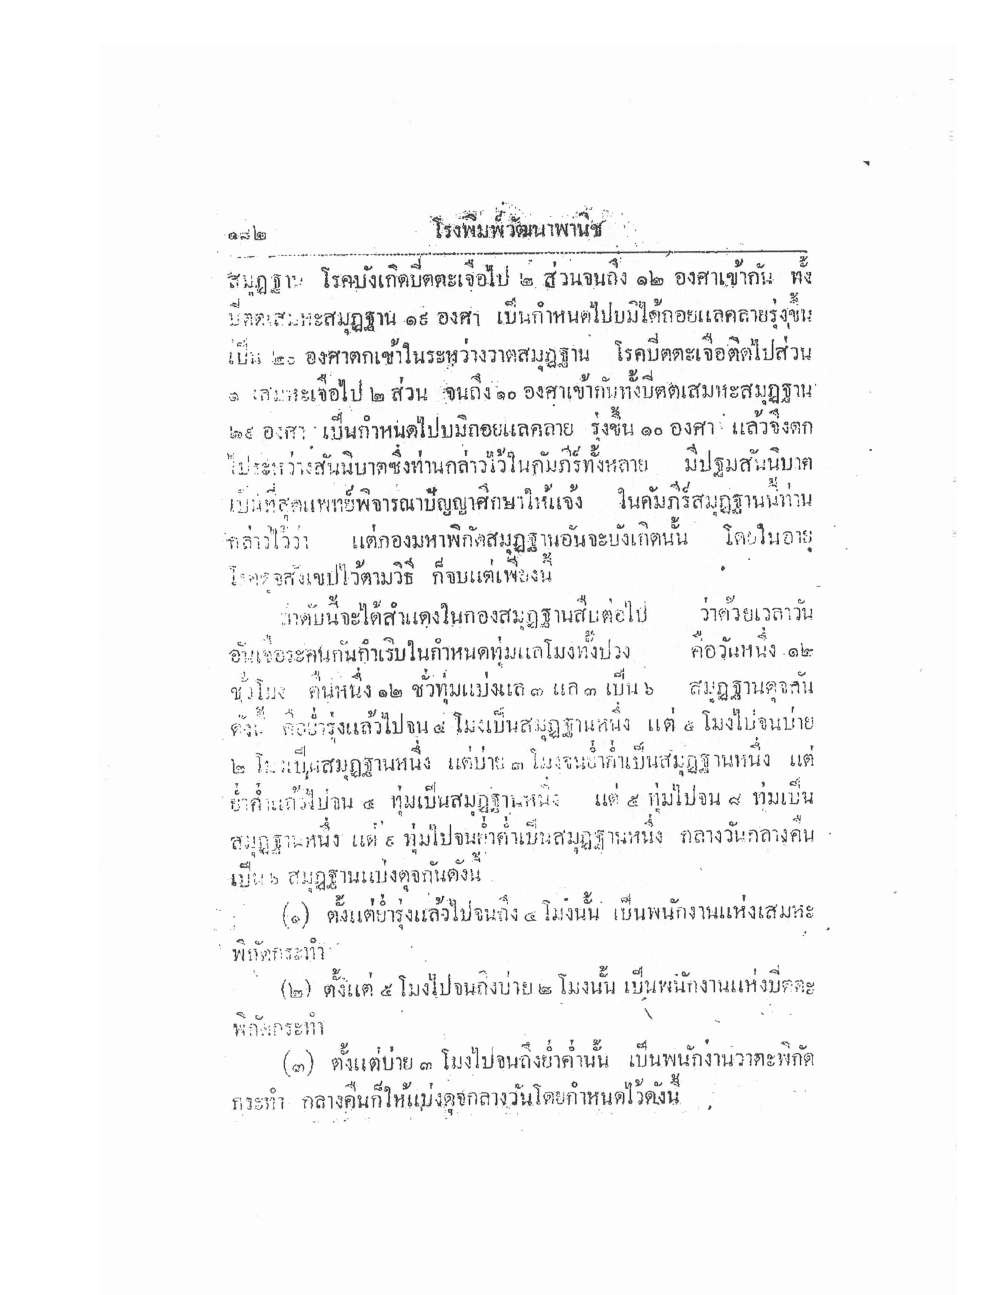 ๑๘๒ โรงพิมพ์วัฒนาพานิช
สมุฏฐาน โรคบังเกิดปิตตะเจือไป ๒ ส่วนจนถึง ๑๒ องศาเข้ากัน ทั้ง
ปิตตเสมหะสมุฏฐาน ๑๙ องศา เป็นกำหนดไปบมิได้ถอยแลคลายรุ่งขึ้น
เป็น ๒๐ องศาตกเข้าในระหว่างวาตสมุฏฐาน โรคปิตตะเจือติดไปส่วน
๑ เสมหะเจือไป ๒ ส่วน จนถึง ๑๐ องศาเข้ากันทั้งปิตตเสมหะสมุฏฐาน
๒๙ องศา เป็นกำหนดไปบมิถอยแลคลาย รุ่งขึ้น ๑๐ องศา แล้วจึงตก
ไประหว่างสันนิบาตซึ่งท่านกล่าวไว้ในคัมภีร์ทั้งหลาย มีปฐมสันนิบาต
เป็นที่สุดแพทย์พิจารณาปัญญาศึกษาให้แจ้ง ในคัมภีร์สมุฏฐานนี้ท่าน
กล่าวไว้ว่า แต่กองมหาพิกัดสมุฏฐานอันจะบังเกิดนั้น โดยในอายุ
โรคดุจสังเขปไว้ตามวิธี ก็จบแต่เพียงนี้
ลำดับนี้จะได้สำแดงในกองสมุฏฐานสืบต่อไป ว่าด้วยเวลาวัน
อันเจือระคนกันกำเริบในกำหนดทุ่มแลโมงทั้งปวง คือวันหนึ่ง ๑๒
ชั่วโมง คืนหนึ่ง ๑๒ ชั่วทุ่มแบ่งแล ๓ แล ๓ เป็น ๖ สมุฏฐานดุจกัน
ดังนี้ คือย่ำรุ่งแล้วไปจน ๔ โมงเป็นสมุฏฐานหนึ่ง แต่ ๕ โมงไปจนบ่าย
๒ โมงเป็นสมุฏฐานหนึ่ง แต่บ่าย ๓ โมงจนย่ำค่ำเป็นสมุฏฐานหนึ่ง แต่
ย่ำค่ำแล้วไปจน ๔ ทุ่มเป็นสมุฏฐานหนึ่ง แต่ ๕ ทุ่มไปจน ๘ ทุ่มเป็น
สมุฏฐานหนึ่ง แต่ ๙ ทุ่มไปจนย่ำค่ำเป็นสมุฏฐานหนึ่ง กลางวันกลางคืน
เป็น ๖ สมุฏฐานแบ่งดุจกันดังนี้
(๑) ตั้งแต่ย่ำรุ่งแล้วไปจนถึง ๔ โมงนั้น เป็นพนักงานแห่งเสมหะ
พิกัดกระทำ
(๒) ตั้งแต่ ๕ โมงไปจนถึงบ่าย ๒ โมงนั้น เป็นพนักงานแห่งปิตตะ
พิกัดกระทำ
(๓) ตั้งแต่บ่าย ๓ โมงไปจนถึงย่ำค่ำนั้น เป็นพนักงานวาตะพิกัด
กระทำ กลางคืนก็ให้แบ่งดุจกลางวันโดยกำหนดไว้ดังนี้